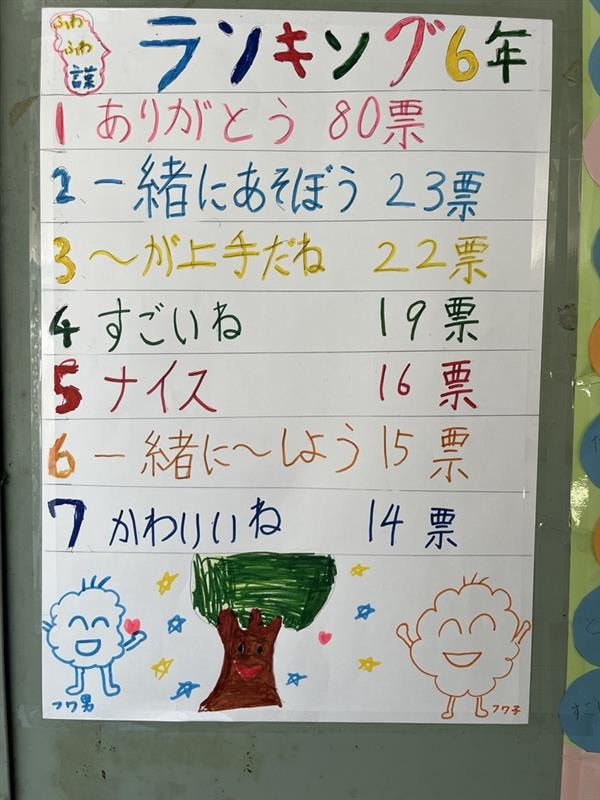 ふわふわ言葉
ランキング6年
1 ありがとう 80票
2 一緒にあそぼう 23票
3 〜が上手だね 22票
4 すごいね 19票
5 ナイス 16票
6 一緒に〜しよう 15票
7 かわりいね 14票
フワ男
フワ子
すごい